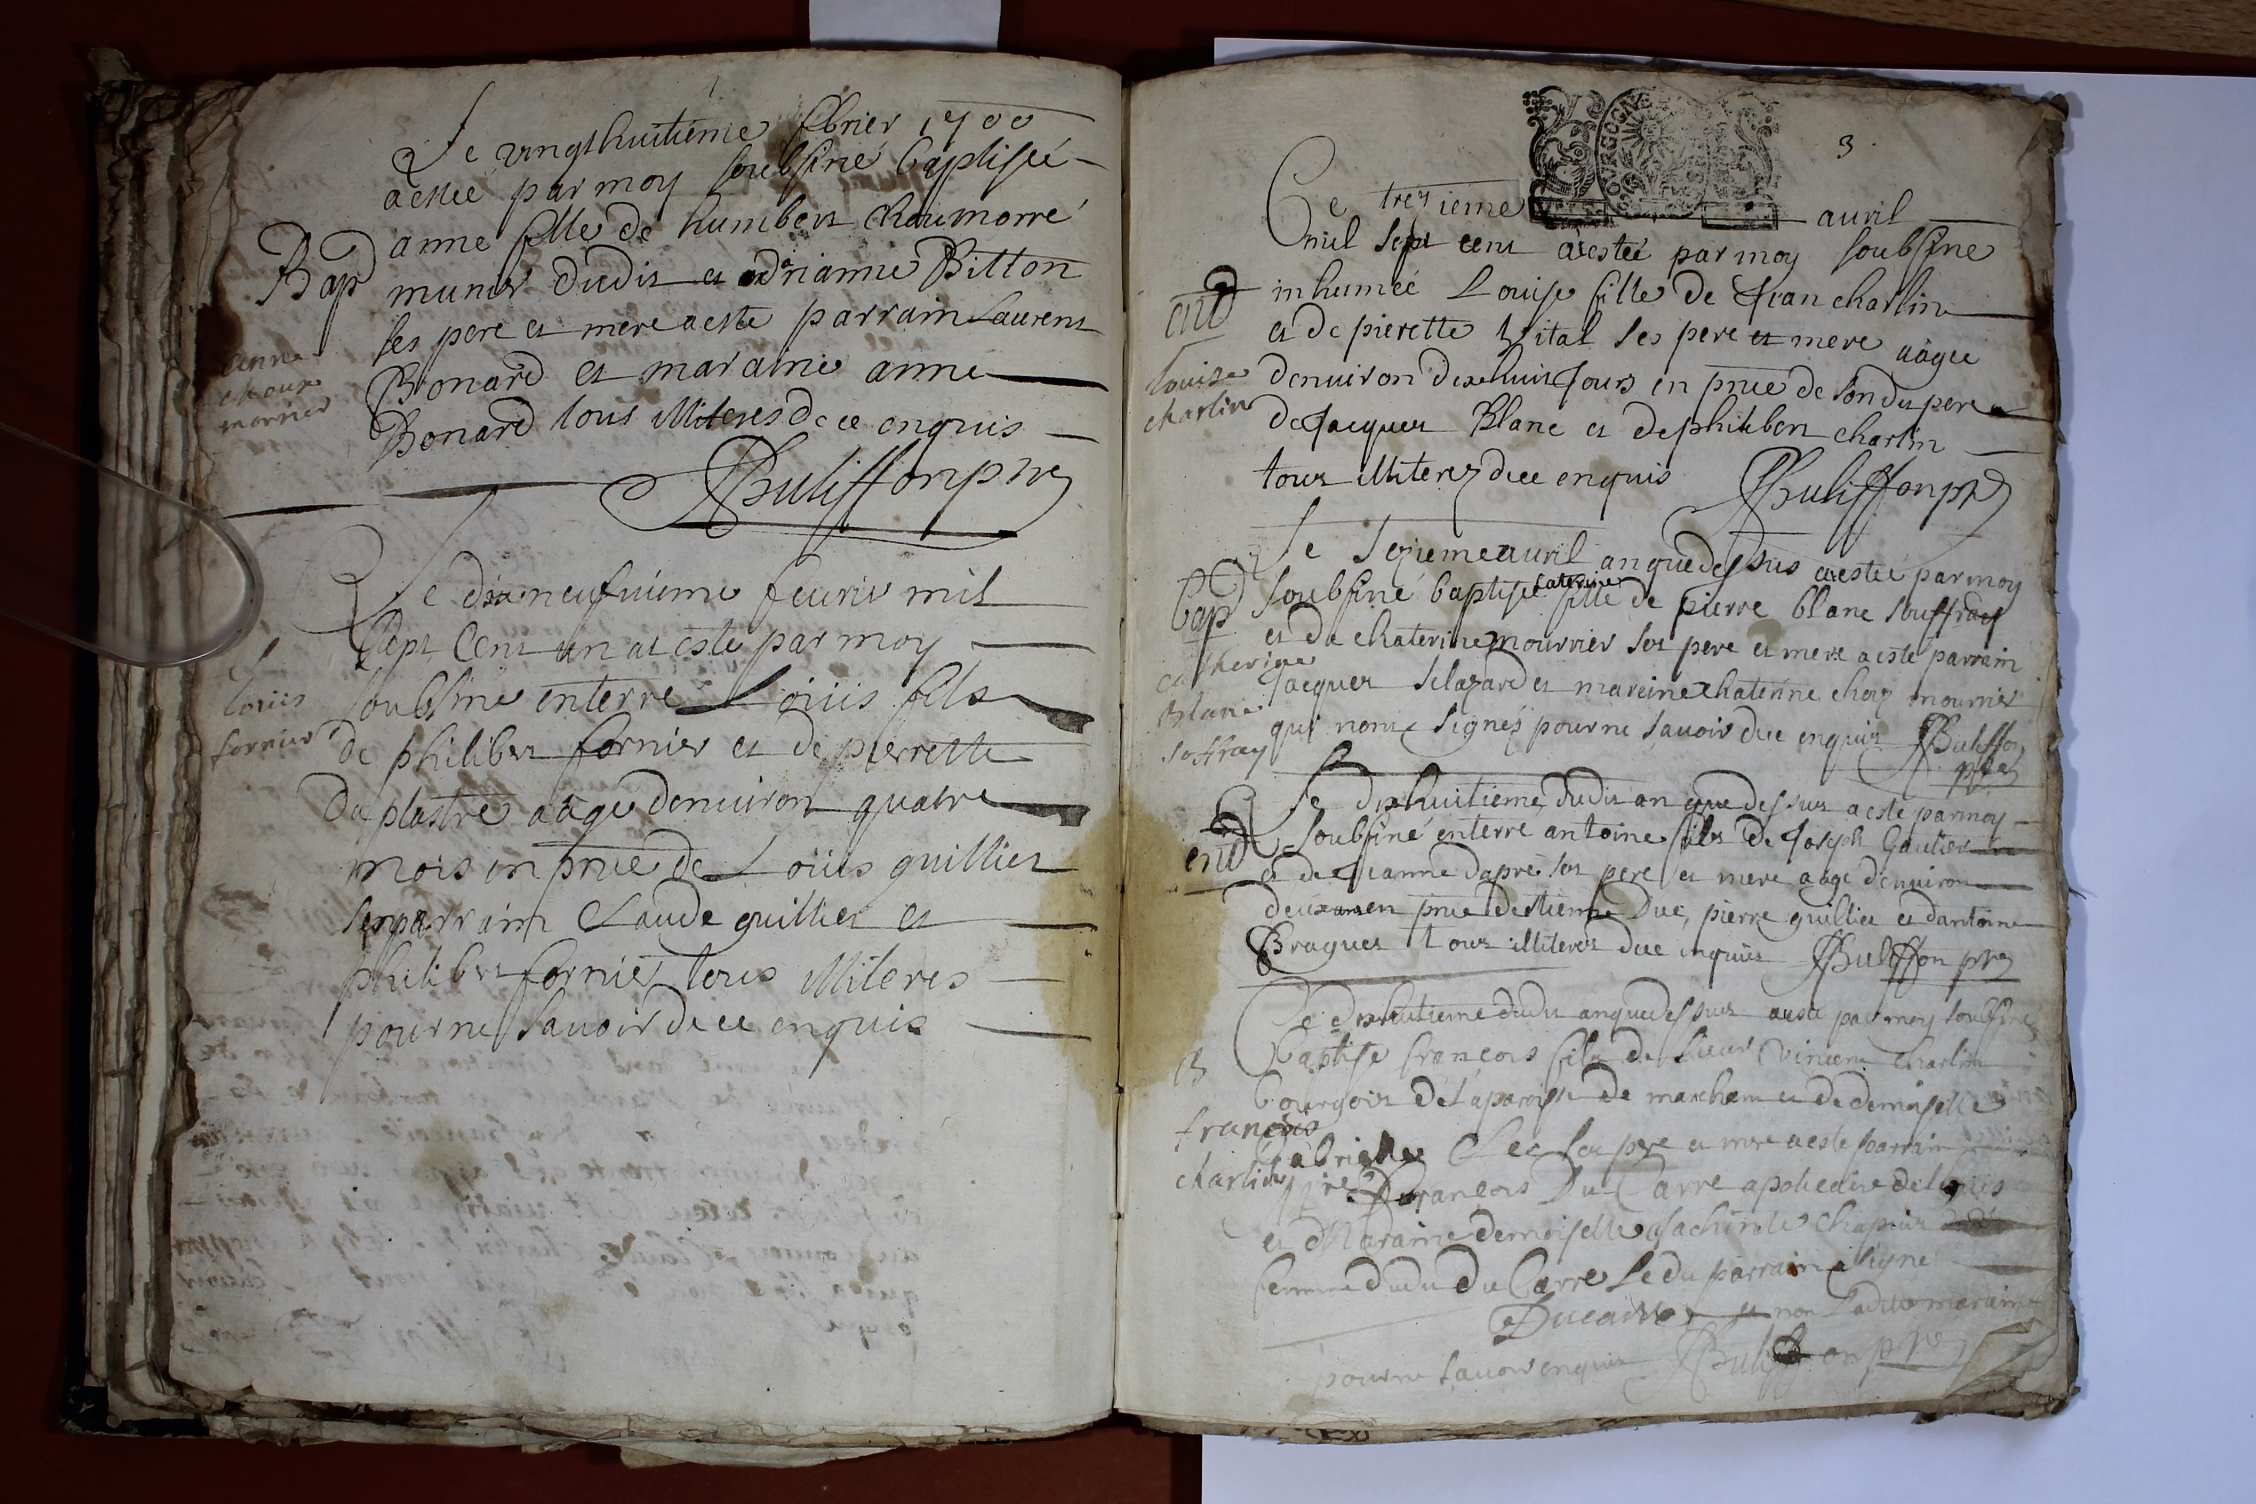 Le vingthuitieme febrier 1700
a estée par moy soubsiné baptiseé
Bap
anne fille de humbert chaumorré
munier dudit et adrianne Bitton
ses pere et mere a esté parrain Laurent
anne
chaux
morrier
Bonard et maraine anne
Bonard tous illiteres de ce enquis
JBuliffon pre
Le dixneufvieme feuvrier mil
sept cent un at este par moy
Louis
fornier
soubsine enterre Loüis fils
de philibert fornier et de pierrette
du plastre aàge denuiron quatre
mois en pnce de Loüis guillier
son parrain Claude guillier et
philibert fornier tous illiteres
pour ne sauoir de ce enquis
3
BOVRGOGNE
Ce trezieme auril
mil sept cent a estée par moy soubsine
ent
inhumée Louise fille de Jean charlin
et de pierette Vital ses pere et mere aàgee
Louise
charlin
denuiron dixhuit Jours en pnce de son du pere
de Jacques Blanc et de philibert charlin
tous illiterez de ce enquis JBuliffon pre
Le sezieme auril an que dessus a estée par moy
Bap
soubsiné baptisée Caterine fille de pierre blanc souffray
et de chaterine mournier ses pere et mere a esté parrain
catherine
Blanc
soffray
Jacques Selazard et mareine chaterine chez mournier
qui nont signéz pour ne sauoir de ce enquis JBuliffon
pre
Le dixhuitieme dudit an que dessus a esté par moy
ent
soubsiné enterre antoine fils de Joseph Gautier
et de Jeanne dapré ses pere et mere aàgé denuiron
deux ans en pnce destienne Duc, pierre guillier et dantoine
Braguer tous illiterez de ce enquis JBuliffon pre
Le dixhuitieme dudit an que dessus a esté par moy soubsine
B
baptise françois fils de sieur Vincent charlin
bourgois de la paroisse de marcham et de demoiselle
françois
charlin
Gabrielle ses pere et mere a esté parrain
françois Du Carre apoticaire
et Maraine demoiselle chapuis
femme dudit du Carre Le du parrain a signé
Ducarre et non Ladite maraine
pour ne sauoir enquis JBuliffon pre